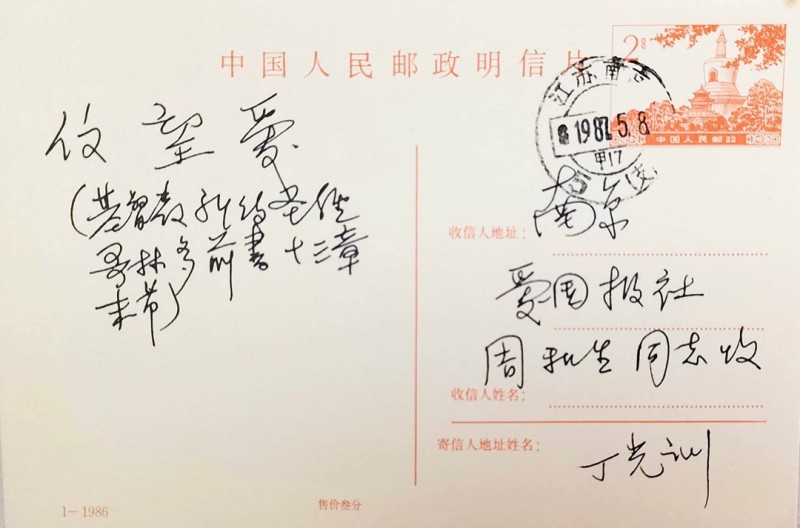 中国人民邮政明信片
2分
中国人民邮政
江苏南京
1987.5.8
甲17
(支)
信望爱
(基督教新约圣经
哥林多前书十三章
末节)
收信人地址:
南京
爱国报社
周和生同志收
收信人姓名:
寄信人地址姓名:
丁光训
1-1986
售价叁分